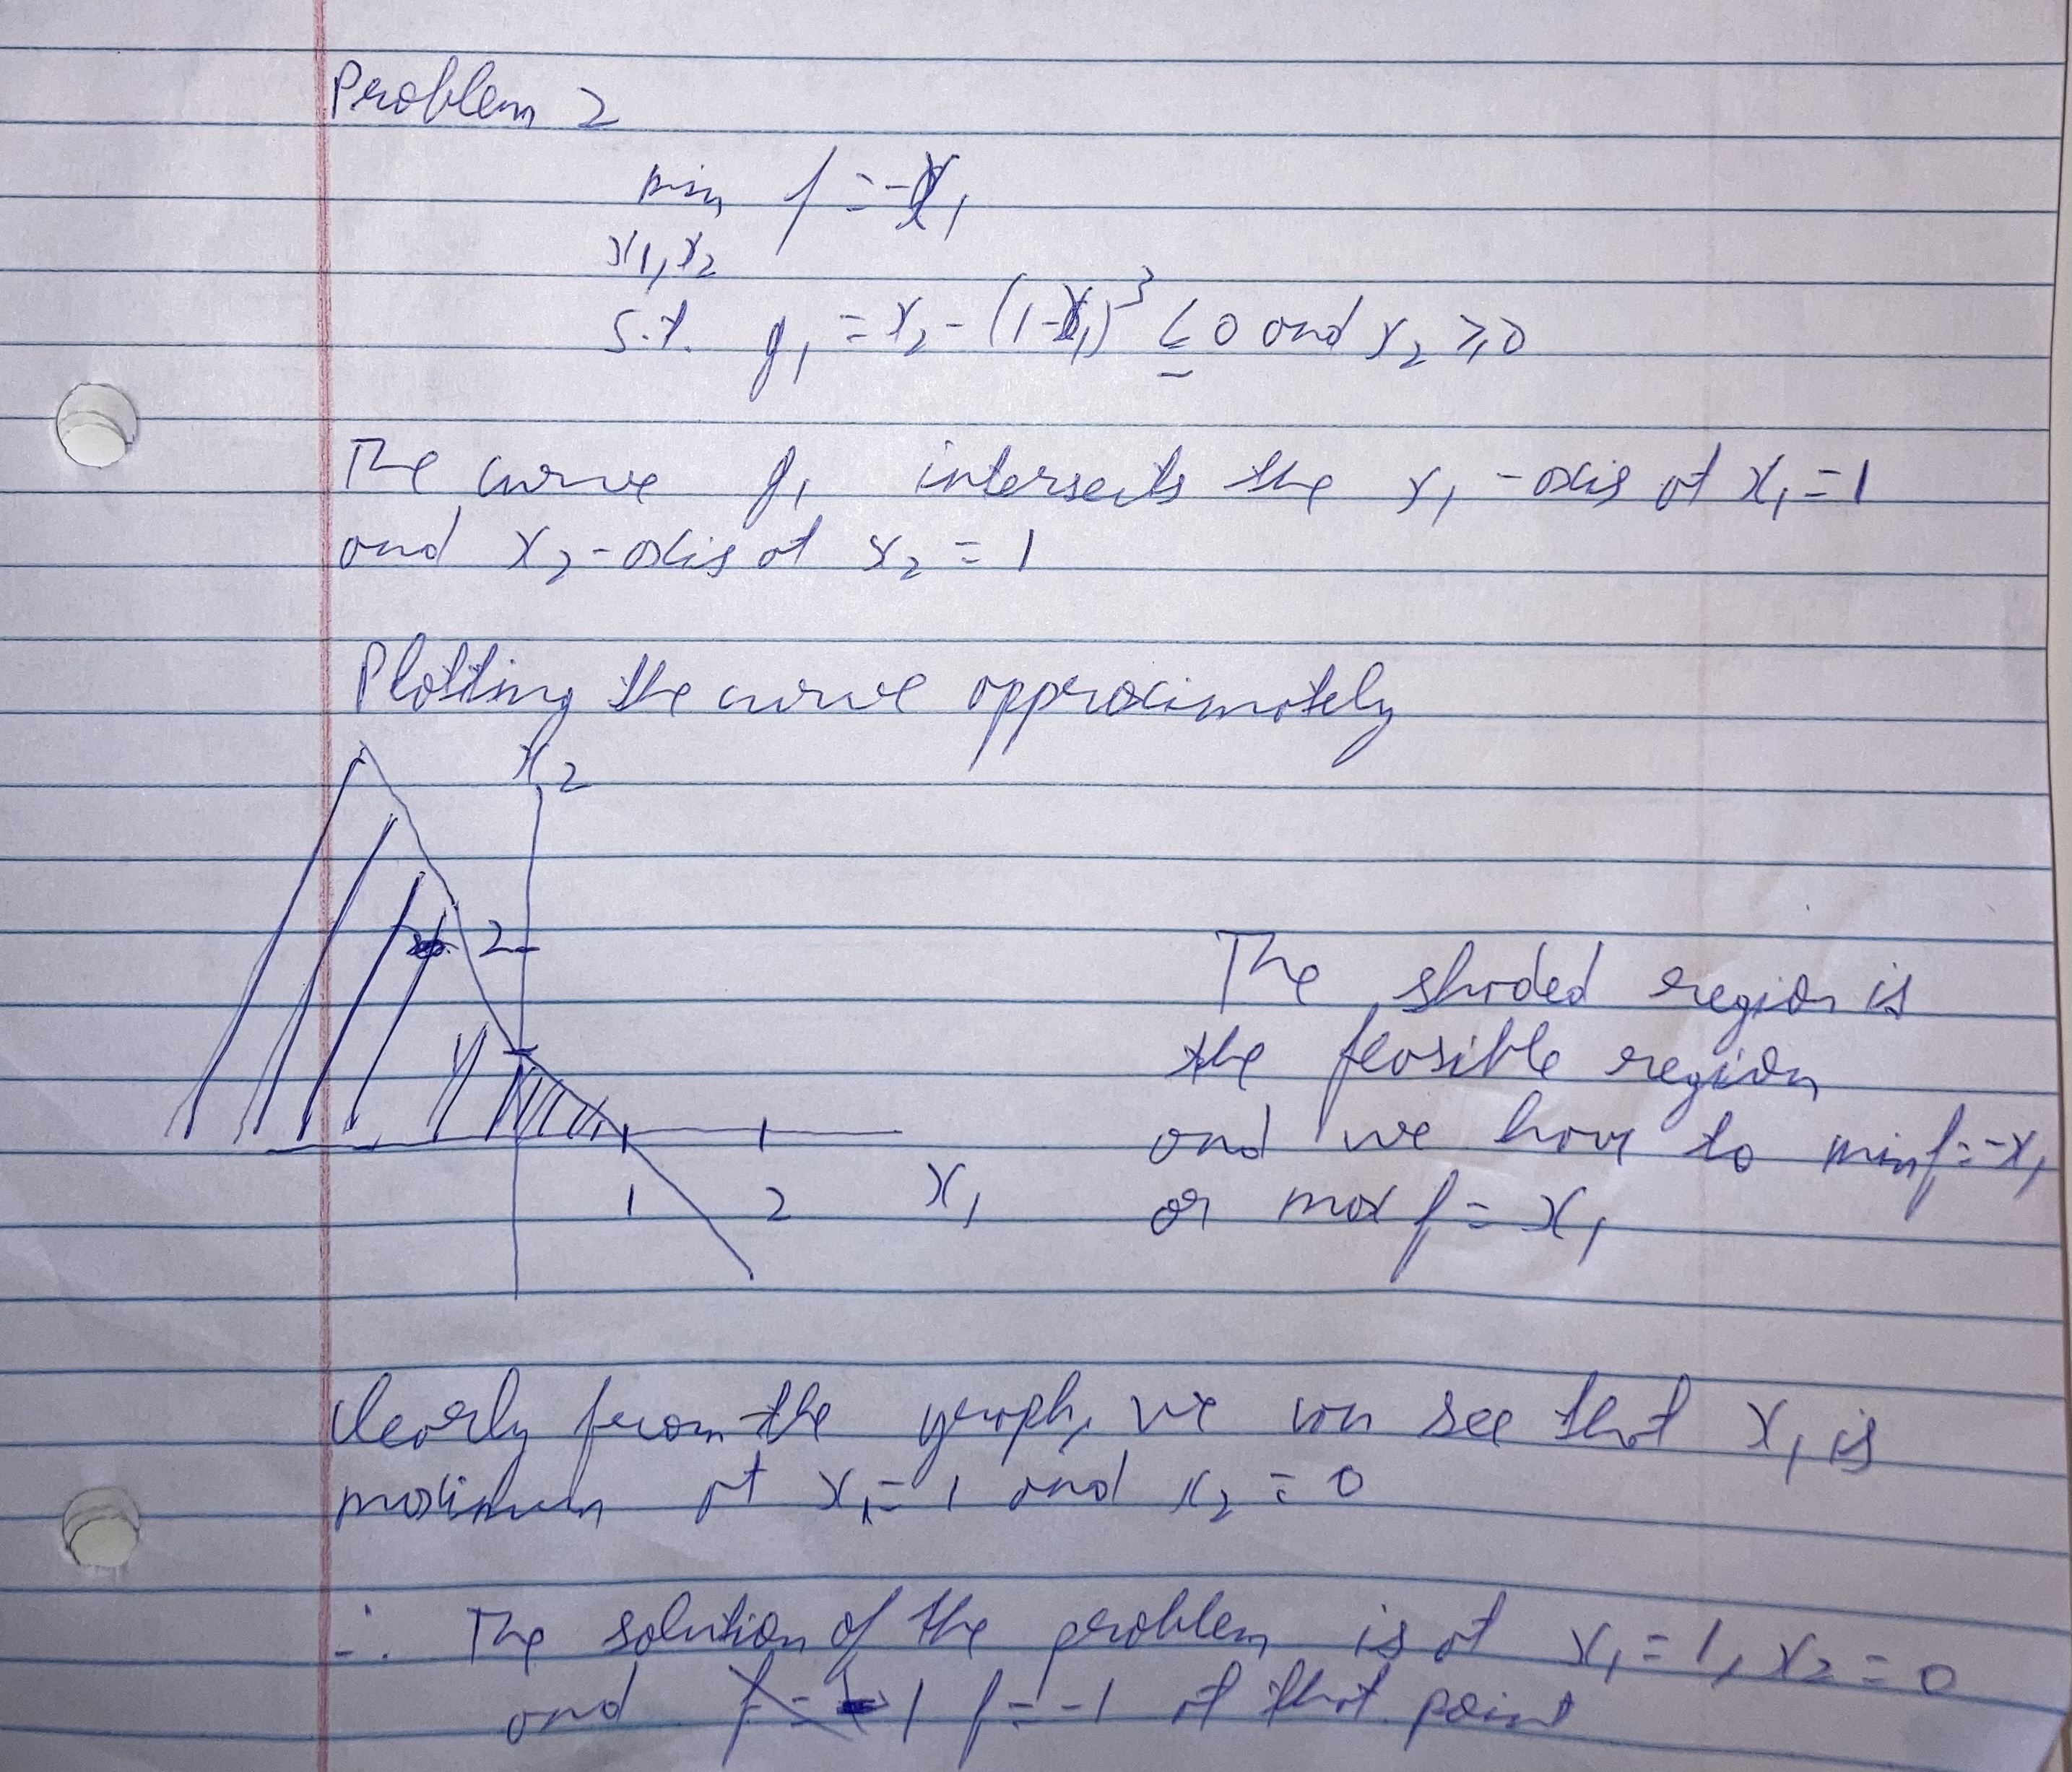 Problem 2
min f = -x₁
x₁, x₂
s.t. g₁ = x₂ - (1-x₁)³ ≤ 0 and x₂ ≥ 0
The curve g₁ intersects the x₁-axis at x₁ = 1
and x₂-axis at x₂ = 1
Plotting the curve approximately
x₂
2
1
1 2 x₁
The shaded region is
the feasible region
and we have to min f = -x₁
or max f = x₁
Clearly from the graph, we can see that x₁ is
maximum at x₁ = 1 and x₂ = 0
∴ The solution of the problem is at x₁ = 1, x₂ = 0
and f = -1 at that point